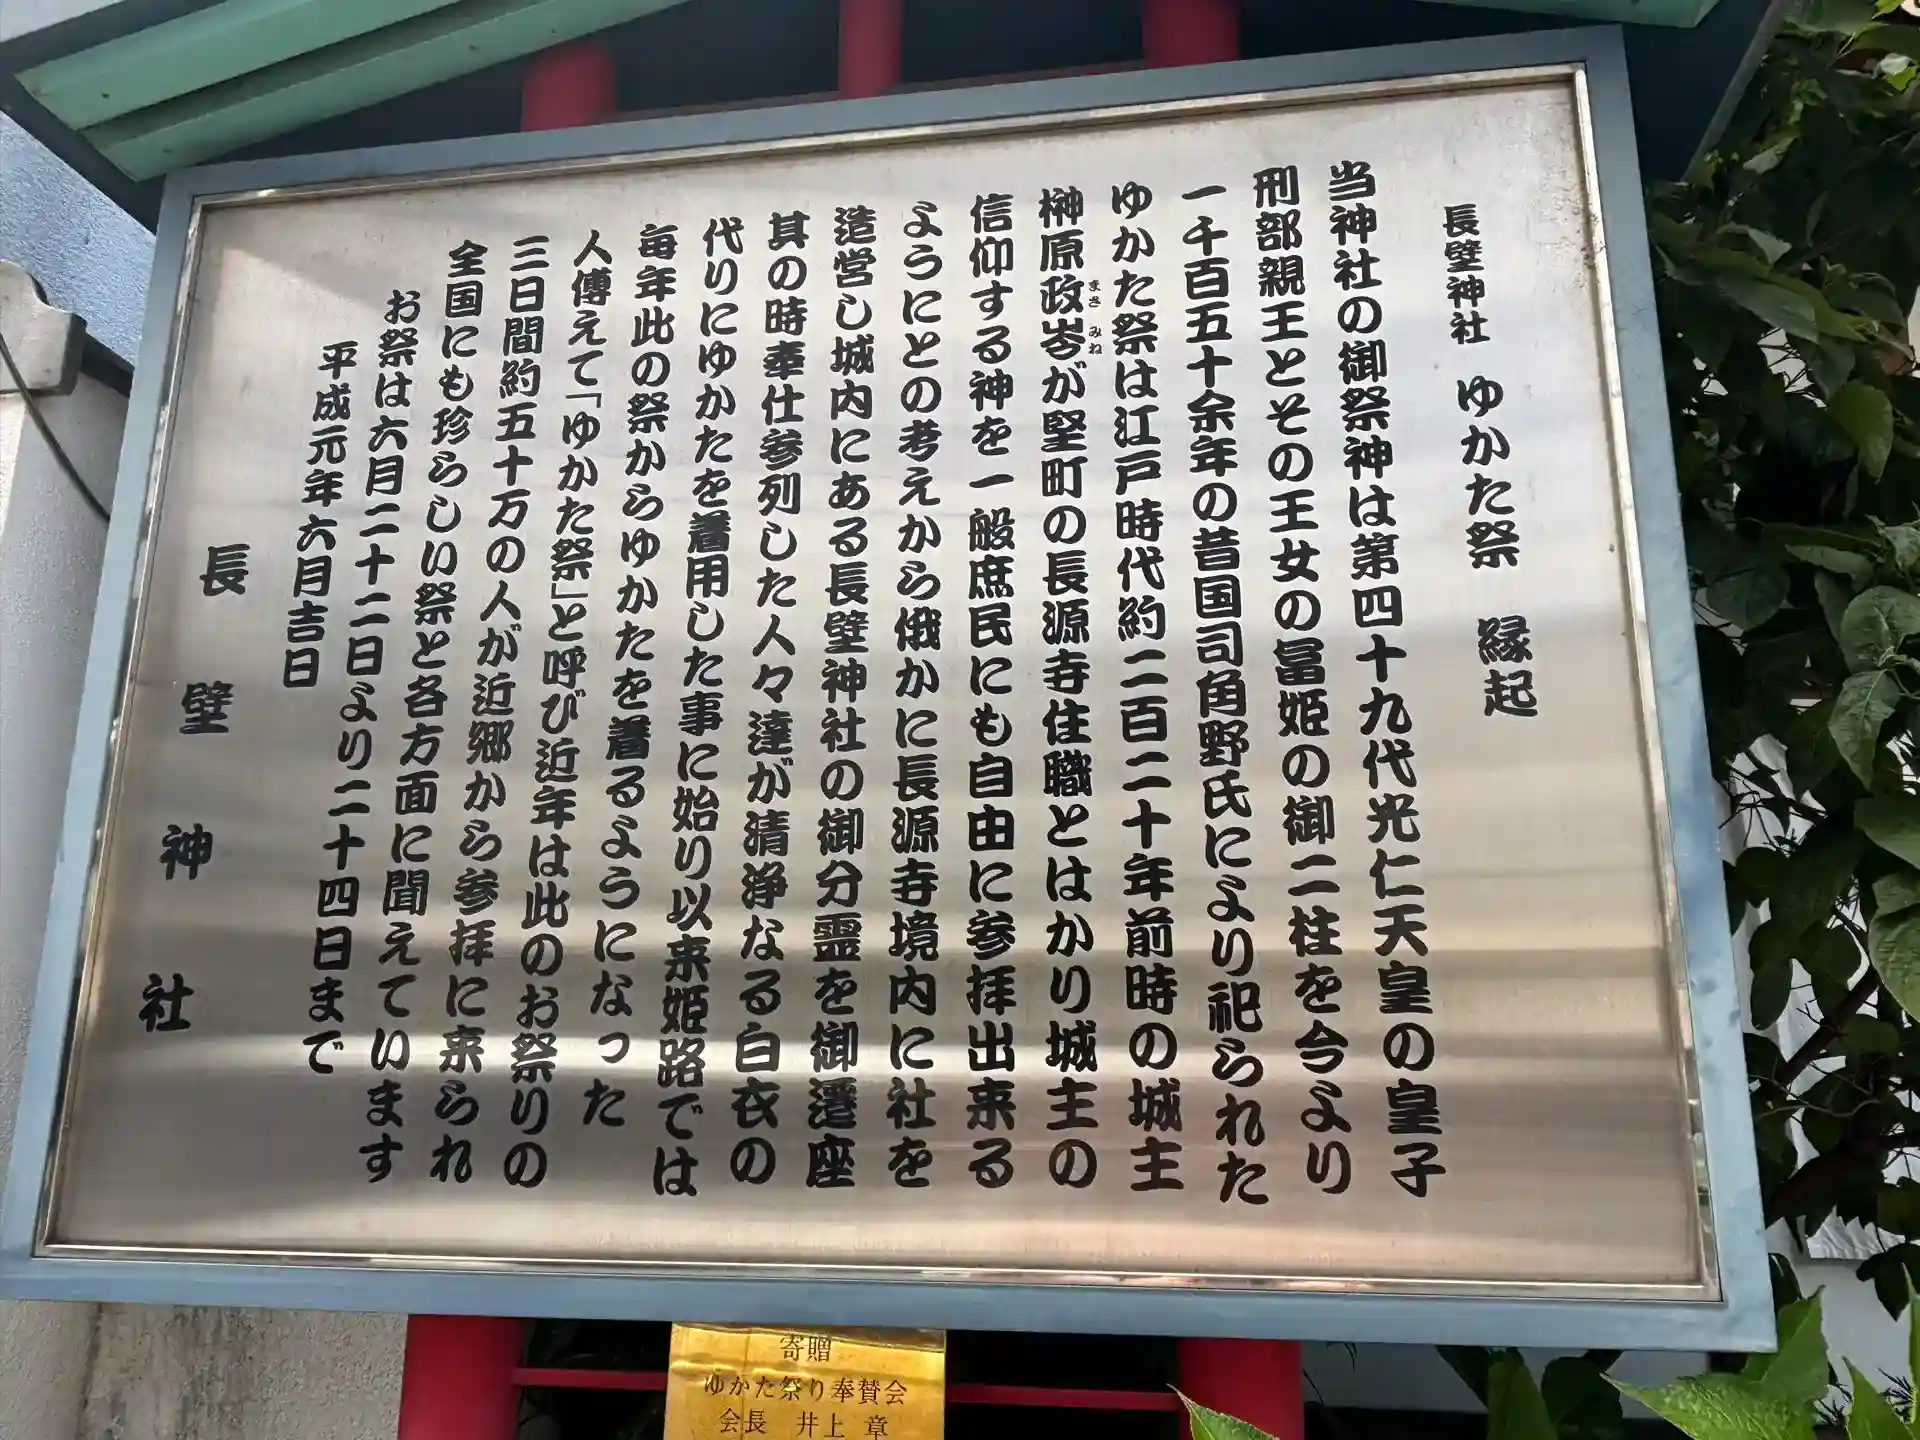 長壁神社 ゆかた祭 縁起
当神社の御祭神は第四十九代光仁天皇の皇子
刑部親王とその王女の冨姫の御二柱を今より
一千百五十余年の昔国司角野氏により祀られた
ゆかた祭は江戸時代約二百二十年前時の城主
榊原政岑が竪町の長源寺住職とはかり城主の
まさ みね
信仰する神を一般庶民にも自由に参拝出来る
ようにとの考えから俄かに長源寺境内に社を
造営し城内にある長壁神社の御分霊を御遷座
其の時奉仕参列した人々達が清浄なる白衣の
代りにゆかたを着用した事に始り以来姫路では
毎年此の祭からゆかたを着るようになった
人傳えて「ゆかた祭」と呼び近年は此のお祭りの
三日間約五十万の人が近郷から参拝に来られ
全国にも珍らしい祭と各方面に聞えています
お祭は六月二十二日より二十四日まで
平成元年六月吉日
長壁神社
寄贈
ゆかた祭り奉賛会
会長 井上 章